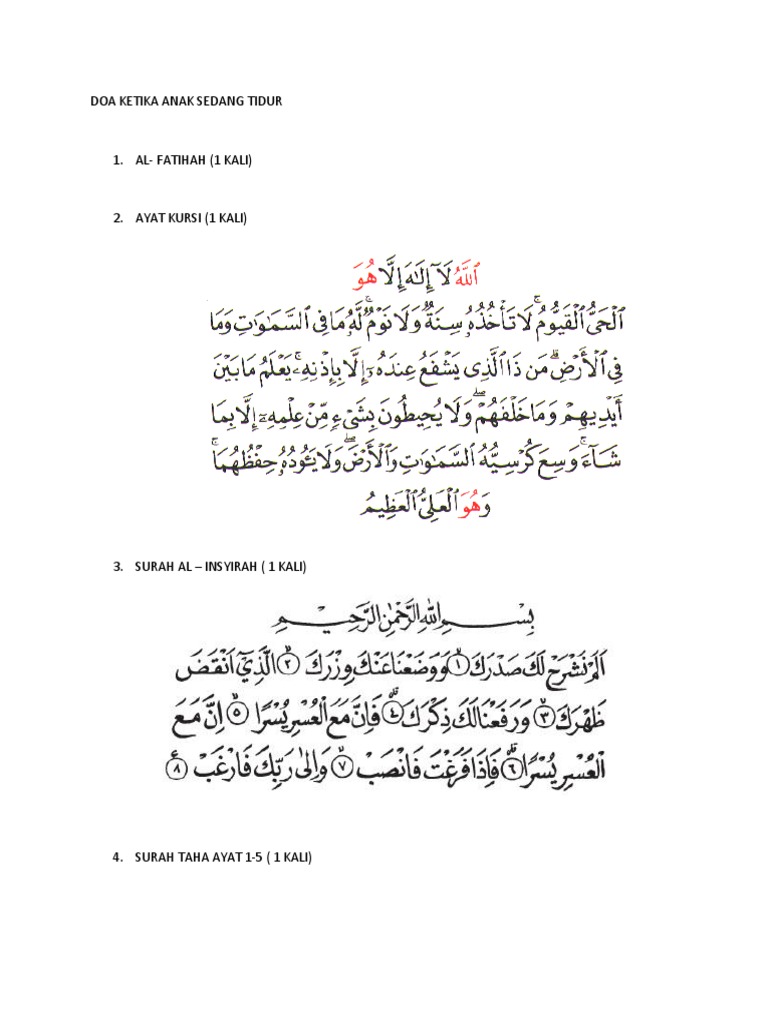 DOA KETIKA ANAK SEDANG TIDUR
1. AL- FATIHAH (1 KALI)
2. AYAT KURSI (1 KALI)
ٱللَّهُ لَآ إِلَٰهَ إِلَّا هُوَ
ٱلْحَىُّ ٱلْقَيُّومُ ۚ لَا تَأْخُذُهُۥ سِنَةٌ وَلَا نَوْمٌ ۚ لَّهُۥ مَا فِى ٱلسَّمَٰوَٰتِ وَمَا
فِى ٱلْأَرْضِ ۗ مَن ذَا ٱلَّذِى يَشْفَعُ عِندَهُۥٓ إِلَّا بِإِذْنِهِۦ ۚ يَعْلَمُ مَا بَيْنَ
أَيْدِيهِمْ وَمَا خَلْفَهُمْ ۖ وَلَا يُحِيطُونَ بِشَىْءٍ مِّنْ عِلْمِهِۦٓ إِلَّا بِمَا
شَآءَ ۚ وَسِعَ كُرْسِيُّهُ ٱلسَّمَٰوَٰتِ وَٱلْأَرْضَ ۖ وَلَا يَـُٔودُهُۥ حِفْظُهُمَا ۚ
وَهُوَ ٱلْعَلِىُّ ٱلْعَظِيمُ
3. SURAH AL – INSYIRAH ( 1 KALI)
بِسْمِ اللهِ الرَّحْمٰنِ الرَّحِيْمِ
اَلَمْ نَشْرَحْ لَكَ صَدْرَكَ ۙ﴿١﴾ وَوَضَعْنَا عَنْكَ وِزْرَكَ ۙ﴿٢﴾ الَّذِيْٓ اَنْقَضَ
ظَهْرَكَ ۙ﴿٣﴾ وَرَفَعْنَا لَكَ ذِكْرَكَ ۗ﴿٤﴾ فَاِنَّ مَعَ الْعُسْرِ يُسْرًا ۙ﴿٥﴾ اِنَّ مَعَ
الْعُسْرِ يُسْرًا ۗ﴿٦﴾ فَاِذَا فَرَغْتَ فَانْصَبْ ۙ﴿٧﴾ وَاِلٰى رَبِّكَ فَارْغَبْ ﴿٨﴾
4. SURAH TAHA AYAT 1-5 ( 1 KALI)